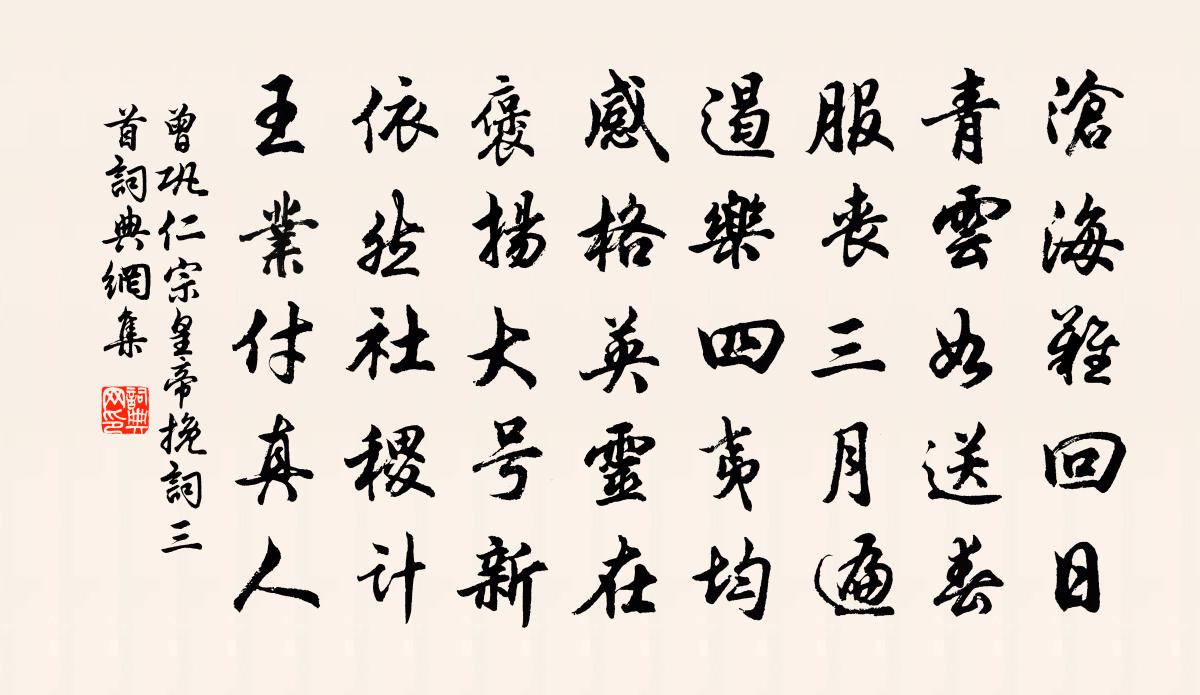 滄海難回日
青雲如送春
服喪三月遍
遏樂四夷均
感格英靈在
褒揚大号新
依然社稷計
王業付真人
曾鞏仁宗皇帝挽詞三
首詞典網集
詞典
网印